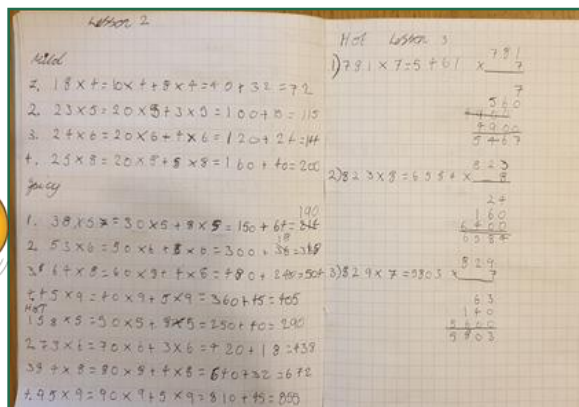 Lesson 2
Mild
1. 18×4=10×4+8×4=40+32=72
2. 23×5=20×5+3×5=100+15=115
3. 24×6=20×6+4×6=120+24=144
4. 25×8=20×8+5×8=160+40=200
Spicy
190
1. 38×5=30×5+8×5=150+
2. 53×6=50×6+ ×6=300+
3. 64×8=60× +4×8=480+ =504
4. 45×9=40×9+5×9=360+45=405
HOT
1 58×5=50×5+8×5=250+40=290
2 73×6=70×6+3×6=420+18=438
3 84×8=80×8+4×8=640+32=672
4. 95×9=90×9+5×9=810+45=855
Hot Lesson 3
1) 781×7=5461
781
× 7
7
560
4900
5467
2) 823×8=6584
823
× 8
24
160
6400
6584
3) 829×7=5803
829
× 7
63
140
5600
5803